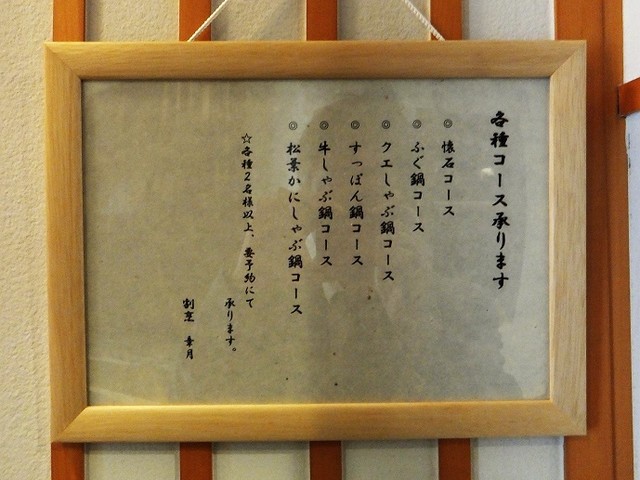 各種コース承ります
◎ 懐石コース
◎ ふぐ鍋コース
◎ クエしゃぶ鍋コース
◎ すっぽん鍋コース
◎ 牛しゃぶ鍋コース
◎ 松葉かにしゃぶ鍋コース
☆各種2名様以上、要予約にて
承ります。
割烹 幸月